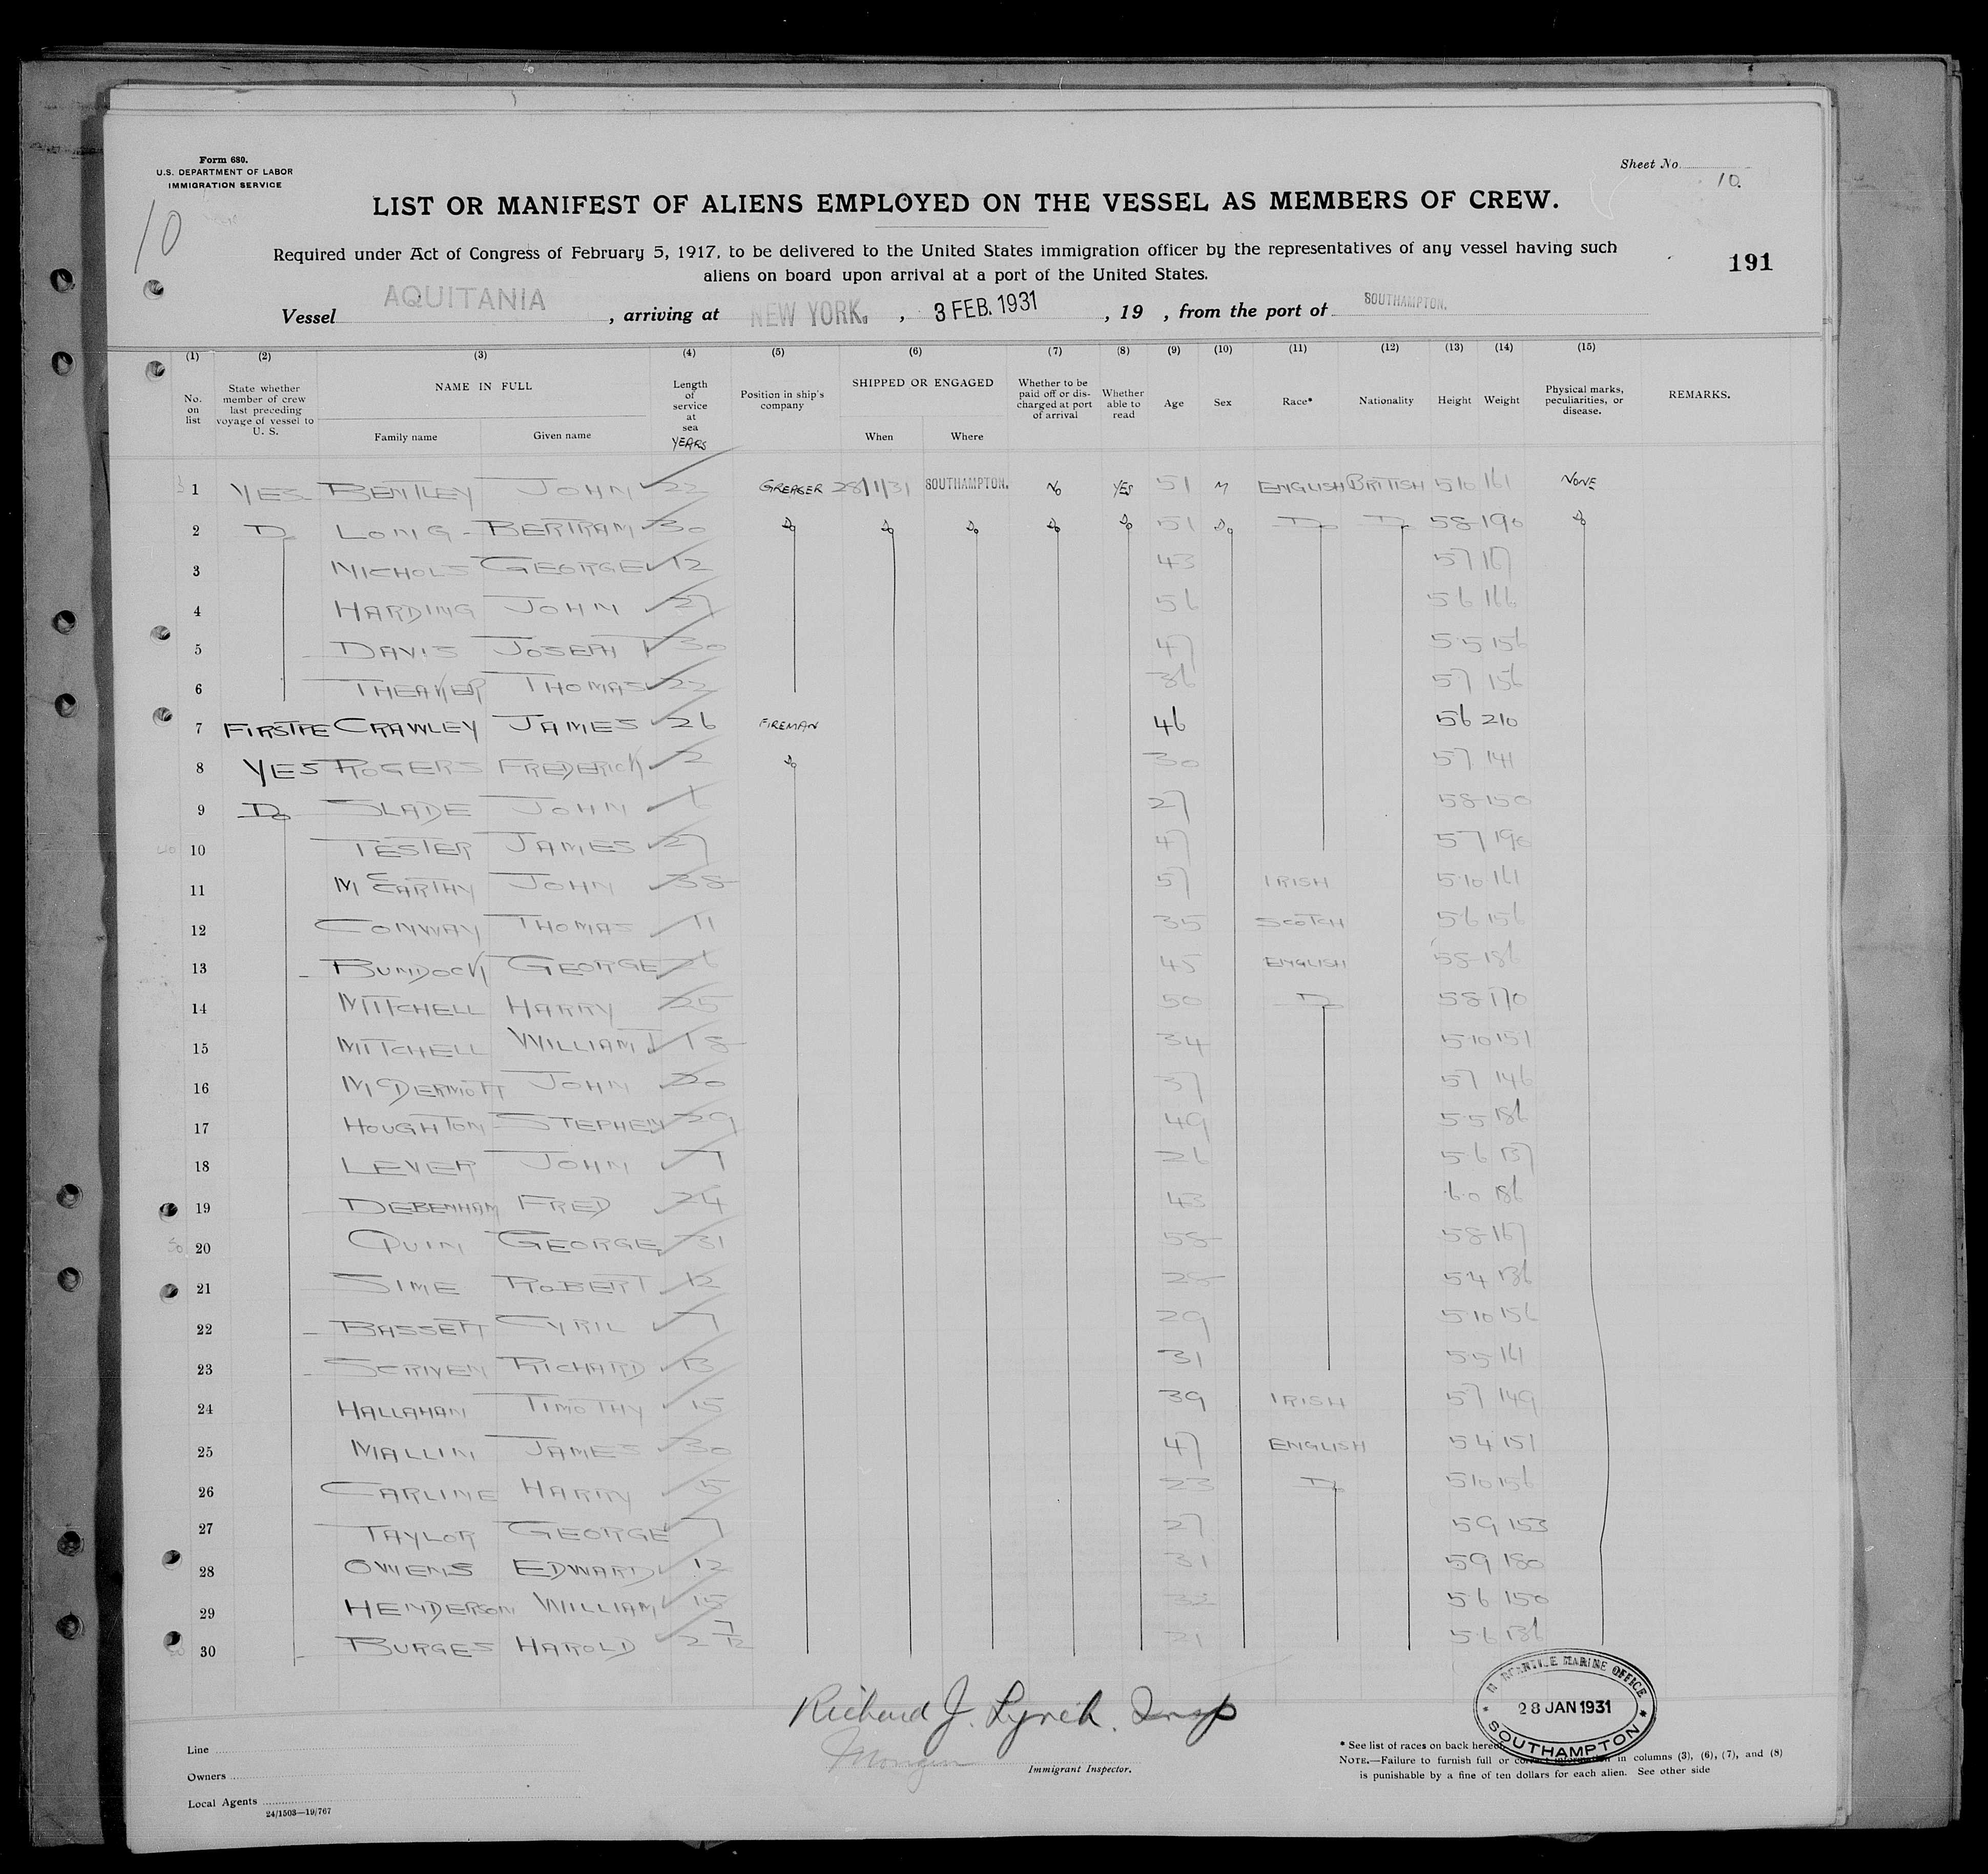 Form 680.
U.S. DEPARTMENT OF LABOR
IMMIGRATION SERVICE
Sheet No.
10.
10
LIST OR MANIFEST OF ALIENS EMPLOYED ON THE VESSEL AS MEMBERS OF CREW.
Required under Act of Congress of February 5, 1917, to be delivered to the United States immigration officer by the representatives of any vessel having such
aliens on board upon arrival at a port of the United States.
191
Vessel AQUITANIA, arriving at NEW YORK, 3 FEB. 1931, 19 , from the port of SOUTHAMPTON.
(1) (2) (3) (4) (5) (6) (7) (8) (9) (10) (11) (12) (13) (14) (15)
No. on list
State whether member of crew last preceding voyage of vessel to U. S.
NAME IN FULL
Family name Given name
Length of service at sea YEARS
Position in ship's company
SHIPPED OR ENGAGED
When Where
Whether to be paid off or discharged at port of arrival
Whether able to read
Age Sex Race* Nationality Height Weight
Physical marks, peculiarities, or disease.
REMARKS.
1 YES BENTLEY JOHN 22 GREASER 28/1/31 SOUTHAMPTON. NO YES 51 M ENGLISH BRITISH 510 161 NONE
2 Do LONG BERTRAM 30 Do Do Do Do Do 51 Do Do Do 58 190 Do
3 NICHOLS GEORGE 12 43 57 167
4 HARDING JOHN 27 56 56 166
5 DAVIS JOSEPH T 30 47 55 156
6 THEAKER THOMAS 22 36 57 156
7 FIRST TRP CRAWLEY JAMES 26 FIREMAN 46 56 210
8 YES ROGERS FREDERICK 2 Do 30 57 141
9 Do SLADE JOHN 6 27 58 150
10 TESTER JAMES 27 47 57 190
11 McCARTHY JOHN 38 57 IRISH 510 161
12 CONWAY THOMAS 11 35 SCOTCH 56 156
13 BUNDOCK GEORGE 26 45 ENGLISH 58 186
14 MITCHELL HARRY 25 50 Do 58 170
15 MITCHELL WILLIAM T 18 34 510 151
16 McDERMOTT JOHN 20 37 57 146
17 HOUGHTON STEPHEN 29 49 55 186
18 LEVER JOHN 7 26 56 137
19 DEBENHAM FRED 24 43 60 186
20 QUIN GEORGE 31 58 58 167
21 SIME ROBERT 12 28 54 136
22 BASSETT CYRIL 7 29 510 156
23 SCRIVEN RICHARD 13 31 55 161
24 HALLAHAN TIMOTHY 15 39 IRISH 57 149
25 MALLIN JAMES 30 47 ENGLISH 54 151
26 CARLINE HARRY 5 23 Do 510 156
27 TAYLOR GEORGE 7 27 59 153
28 OWENS EDWARD 12 31 59 180
29 HENDERSON WILLIAM 15 32 56 150
30 BURGES HAROLD 2 7/12 21 56 136
Richard J. Lynch. Insp
Immigrant Inspector.
MERCANTILE MARINE OFFICE
28 JAN 1931
SOUTHAMPTON
Line
Owners
Local Agents
24/1503—19/767
* See list of races on back hereof.
NOTE.—Failure to furnish full or correct information in columns (3), (6), (7), and (8)
is punishable by a fine of ten dollars for each alien. See other side